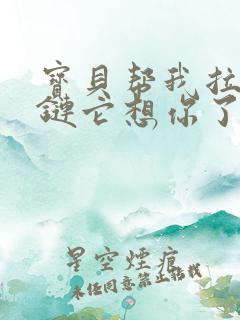 寳貝帮我拉
鏈它想你了
星空煙痕
未经同意禁止搭我